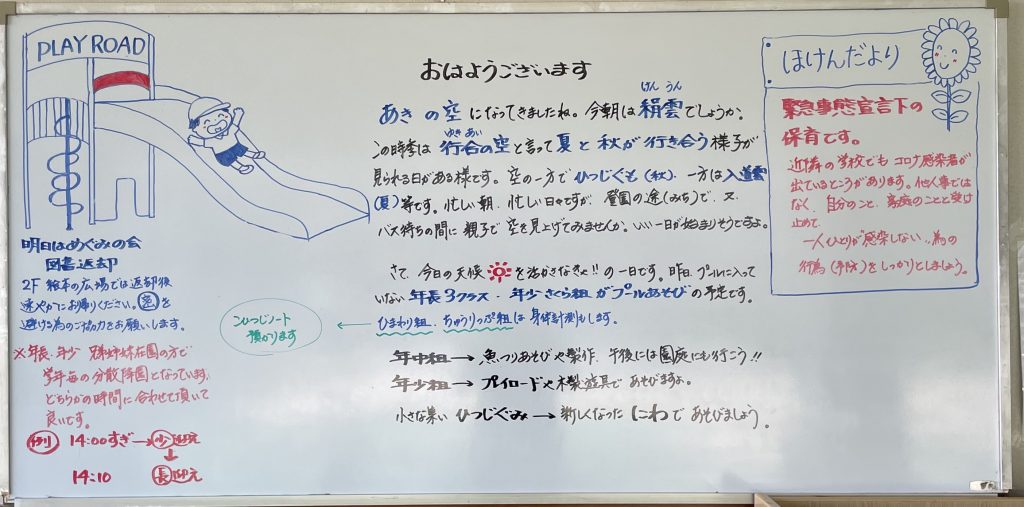 PLAY ROAD
明日はめぐみの会
図書返却
2F 絵本の広場では返却後
速やかにお帰りください。密を
避ける為のご協力をお願いします。
※年長、年少 兄弟姉妹在園の方で
学年毎の分散降園となっています。
どちらかの時間に合わせて頂いて
良いです。
例 14:00すぎ→少迎え
↓
14:10 長迎え
おはようございます
あきの空になってきましたね。今朝は絹雲でしょうか。
けん うん
この時季は行合の空と言って夏と秋が行き合う様子が
ゆき あい
見られる日がある様です。空の一方でひつじぐも(秋)、一方は入道雲
(夏)等です。忙しい朝、忙しい日々ですが、登園の途(みち)で、又、
バス待ちの間に親子で空を見上げてみませんか。いい一日が始まりそうですよ。
さて、今日の天候を活かさなきゃ!!の一日です。昨日、プールに入って
いない年長3クラス、年少さくら組がプールあそびの予定です。
ひまわり組、ちゅうりっぷ組は身体計測もします。
こひつじノート
預かります
←
年中組→魚つりあそびや製作、午後には園庭にも行こう!!
年少組→プレイロードや木製遊具であそびますよ。
小さな集い ひつじぐみ→新しくなったにわであそびましょう。
ほけんだより
緊急事態宣言下の
保育です。
近隣の学校でもコロナ感染者が
出ているところがあります。他人事では
なく、自分のこと、家庭のことと受け
止めて、
一人ひとりが"感染しない"為の
行為(予防)をしっかりとしましょう。